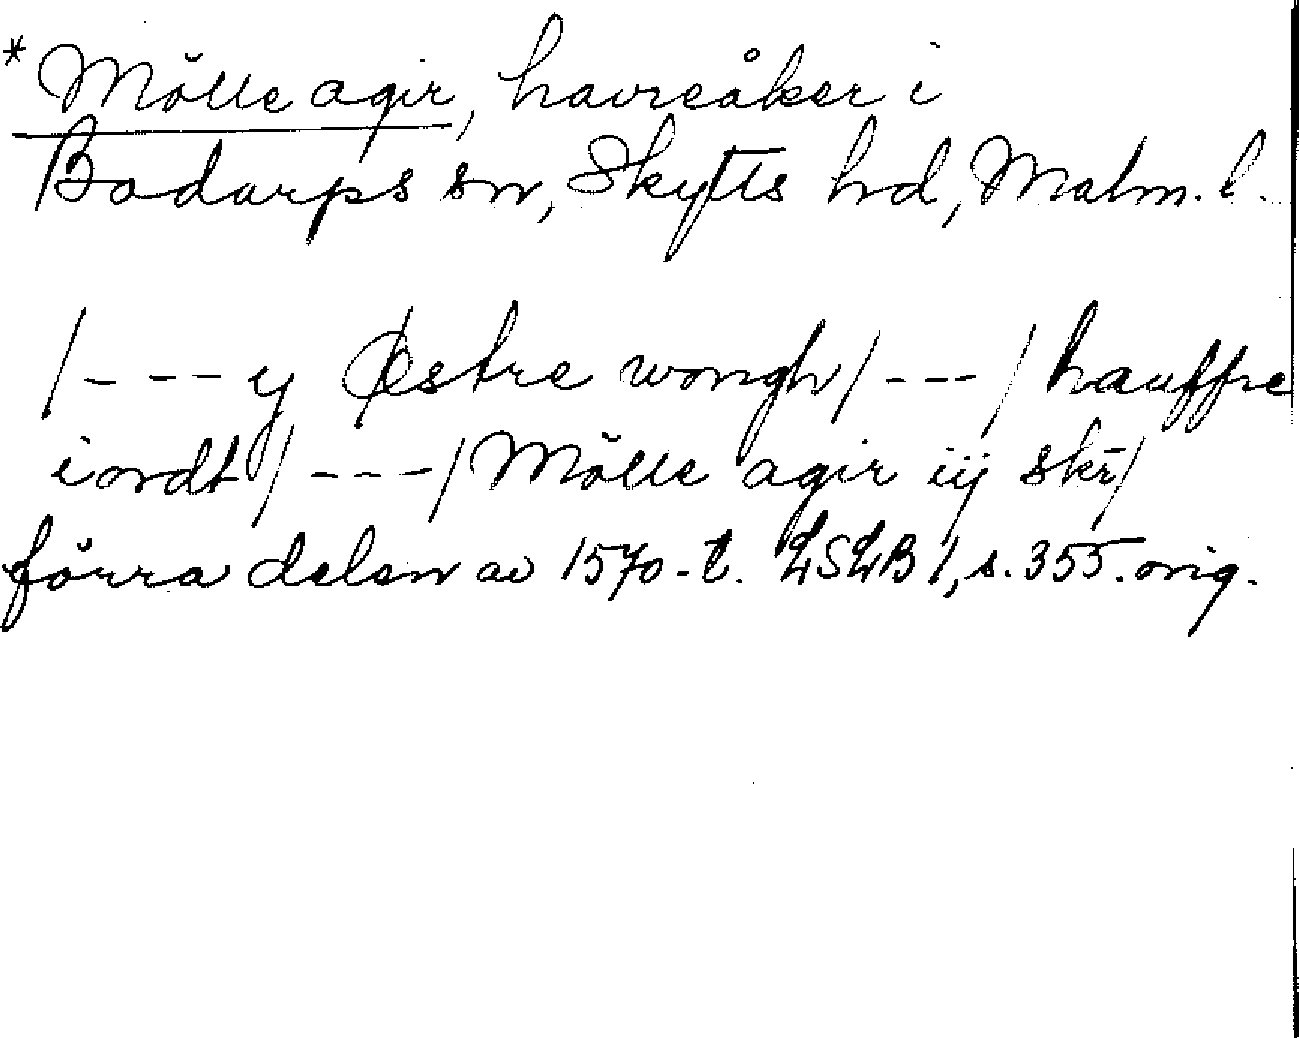 *Mölle agir, havreåker i
Bodarps sn, Skytts hd, Malm. l.
/---y Østre wongh/---/hauffre
iordt/---/Mölle agir iij skr/
förra delen av 1570-t. LSLB 1, s. 355. orig.